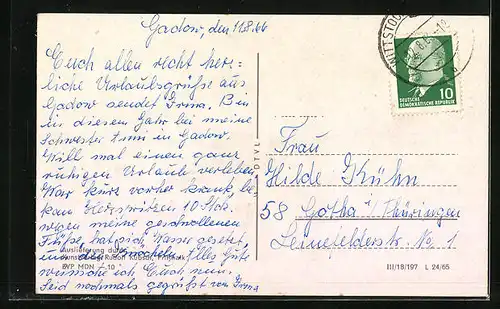 Gadow, den 11.8.66
Euch allen recht herz-
liche Urlaubsgrüße aus
Gadow sendet Irma. Bin
in diesem Jahr bei meine
Schwester Anni in Gadow.
Will mal einen ganz
ruhigen Urlaub verleben
War kurz vorher krank, be
kam Herzspritzen 10 Stck.
wegen meine geschwollenen
Füße, hat sich Wasser gesetzt,
Alles Gute
wünsche ich Euch nun.
Seid nochmals gegrüßt von Irma
Auslieferung durch
EVP MDN -.10
DTVL
WITTSTOCK
10
DEUTSCHE
DEMOKRATISCHE REPUBLIK
Frau
Hilde Kühn
58 Gotha / Thüringen
Leinefelderstr. No 1
III/18/197 L 24/65